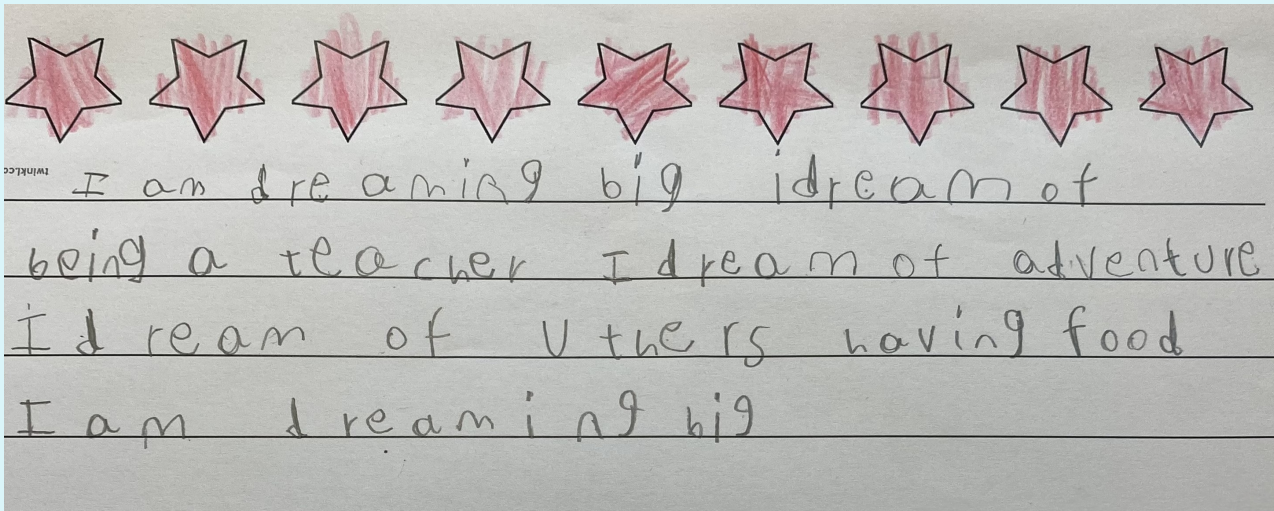 twinkl.co
I am dreaming big idream of
being a teacher I dream of adventure
I dream of Uthers having food
I am dreaming big